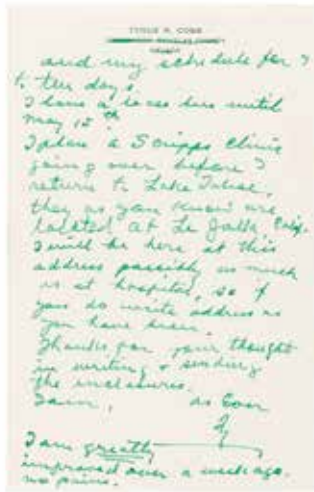 TYRUS R. COBB
and my schedule for 7
to ten days.
I have a lease here until
May 15th
I plan a Scripps Clinic
going over before I
return to Lake Tahoe,
they as you know are
located at La Jolla, Calif.
I will be here at this
address possibly as much
as at hospital, so if
you do write address as
you have been.
Thanks for your thought
in writing + sending
the inclosures.
I am, as Ever
Ty
I am greatly
improved over a week ago.
no pains.